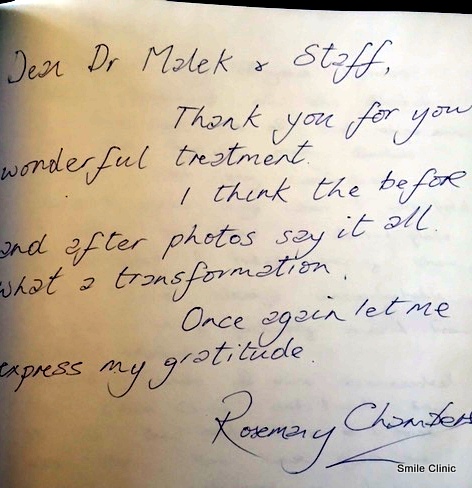 Dear Dr Malek & Staff,
Thank you for you
wonderful treatment.
I think the before
and after photos say it all.
What a transformation.
Once again let me
express my gratitude.
Rosemary Chambers
Smile Clinic